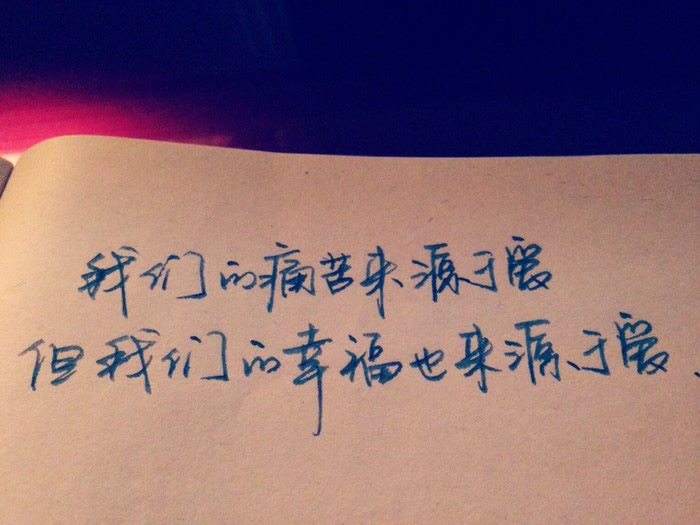 我们的痛苦来源于爱
但我们的幸福也来源于爱.